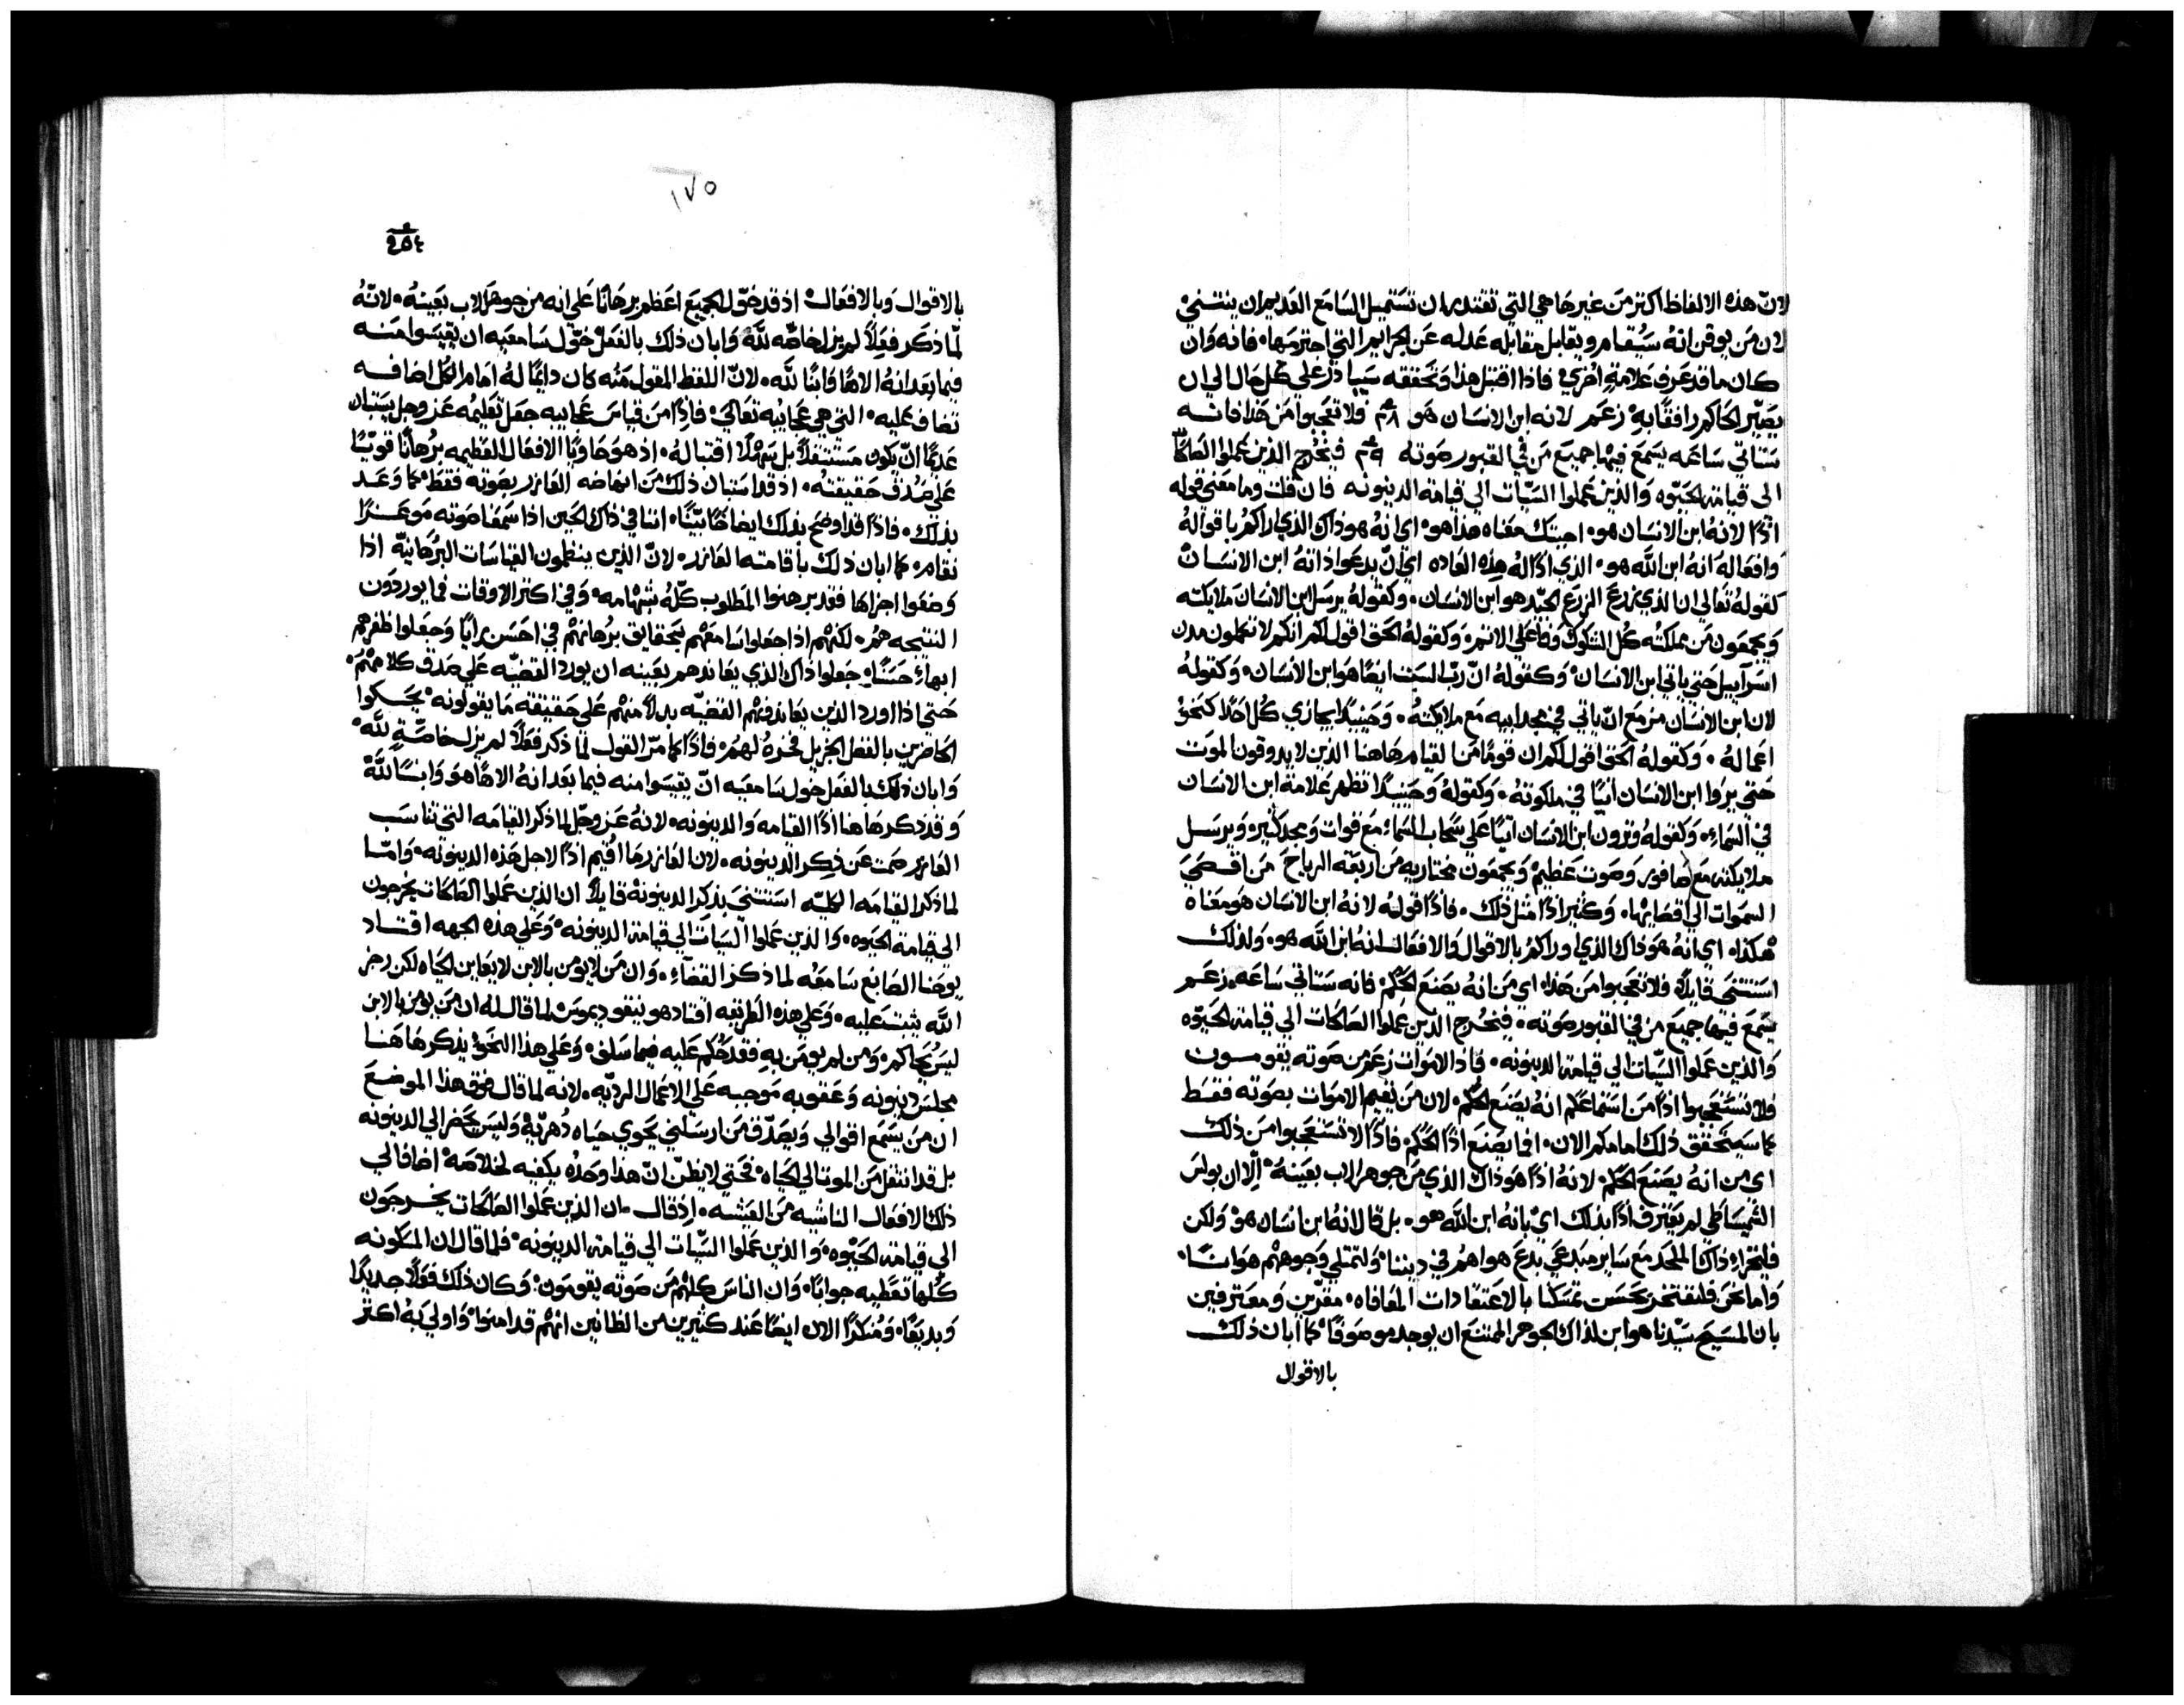 لانّ هذه الالفاظ اكثر من غيرها هي التي تقتدر ان تستميل السامع العديم ان ينثني
لان من يوقن انه سيُقام ويقابل مقابله عدله عن الجرايم التي اجترمها، فانه وان
كان ما قد عرف علامة اخري، فاذا اقتبل هذا وتحققه سيبادر علي كل حال الي ان
يصيّر الحاكم رافقًا به زعم لانه ابن الانسان هو ٢٨ فلا تعجبوا من هذا فانه
ستاتي ساعه يسمع فيها جميع من في القبور صوته ٢٩ فيخرج الذين عملوا الصالحات
الي قيامة الحيوه والذين عملوا السيّات الي قيامة الدينونه فان قلت وما معني قوله
اذًا لانه ابن الانسان هو، اجبتك معناه هذا هو، اي انه هو ذاك الذي اراكم باقواله
وافعاله انه ابن الله هو، الذي اذًا له هذه العاده اي انّ يدعوا ذاته ابن الانسان
كقوله تعالي ان الذي يزرع الزرع الجيّد هو ابن الانسان، وكقوله يرسل ابن الانسان ملايكته
ويجمعون من مملكته كل الشكوك وفاعلي الاثم، وكقوله الحق اقول لكم انكم لا تكملون مدن
اسراييل حتي ياتي ابن الانسان، وكقوله انّ ربّ السبت ايضًا هو ابن الانسان، وكقوله
لان ابن الانسان مزمع انّ ياتي في مجد ابيه مع ملايكته، وحينيذٍ يجازي كل احدًا كنحو
اعماله، وكقوله الحق اقول لكم ان قومًا من القيام هاهنا الذين لا يدوقون الموت
حتي يروا ابن الانسان اتيًا في ملكوته، وكقوله وحينيذًا تظهر علامة ابن الانسان
في السماء، وكقوله وترون ابن الانسان اتيًا علي سحاب السماء مع قوات ومجد كثير، ويرسل
ملايكته مع صافور وصوت عظيم ويجمعون مختاريه من اربعة الرياح من اقصي
السموات الي اقصايها، وكثير اذًا مثل ذلك، فاذًا قوله لانه ابن الانسان هو معناه
هكذا، اي انه هو ذاك الذي اوراكم بالاقوال والافعال انه ابن الله هو، ولذلك
استثني قايلًا، فلا تعجبوا من هذا، اي من انه يصنع الحكم، فانه ستاتي ساعه زعم
يسمع فيها جميع من في القبور صوته، فيخرج الذين عملوا الصالحات الي قيامة الحيوه
والذين عملوا السيّات الي قيامة الدينونه، فاذ الاموات زعم من صوته يقومون
فلا تستعجبوا اذًا من استماعكم انه يصنع الحكم، لان من يقيم الاموات بصوته فقط
كما سيتحقق ذلك امامكم الان، افما يصنع اذًا الحكم، فاذًا لا تستعجبوا من ذلك
اي من انه يصنع الحكم، لانه اذًا هو ذاك الذي من جوهر الاب بعينه، الّا ان بولس
الشميساطي لم يعترف اذًا بذلك اي بانه ابن الله هو، بل قال لانه ابن انسان هو، ولكن
فليخزاء ذاك الملحد مع ساير مبدعي بدع هواهم في ديننا، ولتمتلي وجوههم هوانًا،
واما نحن فلنفتخر بحسن تمسكنا بالاعتقادات المعافاه، مقرّين ومعترفين
بان المسيح سيّدنا هو ابن لذاك الجوهر الممتنع ان يوجد موصوفًا، كما ابان ذلك
بالاقوال
١٧٥
٢٥٤
بالاقوال وبالافعال، اذ قد خوّل الجميع اعظم برهانًا علي انه من جوهر الاب بعينه، لانّه
لمّا ذكر فعلًا لم يزل خاصّه لله وابان ذلك بالفعل خوّل سامعيه ان يقيسوا منه
فيما بعد انه الاهًا وابنًا لله، لانّ اللفظ المقول منه كان دايمًا له امام الكل اضافه
تضاف عليه، التي هي عجايبه تعالي، فاذًا من قياس عجايبه جعل تعليمه عز وجل يستبان
عديمًا انّ يكون مستثقلًا بل سهلًا اقتباله، اذ هو حاويًا الافعال العظيمه برهانًا قويًّا
علي صدق حقيقته، اذ قد استبان ذلك من انهاضه العازر بصوته فقط، كما وعد
بذلك، فاذًا قد اوضح بذلك ايضاحًا بيّنًا، اننا في ذاك الحين اذا سمعنا صوته موعزًا
نقام، كما ابان ذلك باقامته العازر، لانّ الذين ينظمون القياسات البرهانيّه اذا
وضعوا اجزاها فقد برهنوا المطلوب كلّه بتمامه، وفي اكثر الاوقات فما يوردون
النتيجه هم، لكنهم اذا جعلوا سامعهم بحقايق برهانهم في احسن رايًا وجعلوا ظفرهم
ابهاء حسنًا، جعلوا ذاك الذي يعاندهم بعينه ان يورد القضيّه علي صدق كلامهم،
حتي اذا اورد الذين يعاندونهم القضيّه بدلًا منهم علي حقيقة ما يقولونه، يحكموا
الحاضرين بالفضل الجزيل فخره لهم، فاذًا كما مرّ القول لمّا ذكر فعلًا لم يزل خاصّةٍ لله،
وابان ذلك بالفعل خول سامعيه انّ يقيسوا منه فيما بعد انه الاهًا هو وابنًا لله
وقد ذكر هاهنا اذًا القيامه والدينونه، لانه عز وجل لما ذكر القيامه التي تناسب
العازر صمت عن ذكر الدينونه، لان العازر ما اقيم اذًا لاجل هذه الدينونه، وامّا
لما ذكر القيامه الكليّه استثني بذكر الدينونة قايلًا ان الذين عملوا الصالحات يخرجون
الي قيامة الحيوه، والذين عملوا السيات الي قيامة الدينونه، وعلي هذه الجهه اقتاد
يوحنا الصابغ سامعه لما ذكر القضاء، وان من لا يومن بالابن لا يعاين الحياه لكن رجز
الله يثبت عليه، وعلي هذه الطريقه اقتاد هو نيقوديموس، لما قال له ان من يومن بالابن
ليس يحاكم، ومن لم يومن به فقد حُكم عليه فيما سلف، وعلي هذا النحو يذكر هاهنا
مجلس دينونه وعقوبه موجبه علي الاعمال الرديّه، لانه لما قال فوق هذا الموضع
ان من يسمع اقوالي ويصدّق من ارسلني يحوي حياه دُهريّه وليس يحضر الي الدينونه
بل قد انتقل من الموت الي الحياه، فحتي لا يظنّ انّ هذا وحده يكفيه لخلاصه، اضاف الي
ذلك الافعال الناشيه من العيشه، اذ قال، ان الذين عملوا الصالحات يخرجون
الي قيامة الحيوه، والذين عملوا السيّات الي قيامة الدينونه، فلما قال ان المسكونه
كلها تعطيه جوابًا، وان الناس كلهم من صوته يقومون، وكان ذلك قولًا جديدًا
وبديعًا، ومُنكرًا الان ايضًا عند كثيرين من الظانين انهم قد امنوا، واولي به اكثر